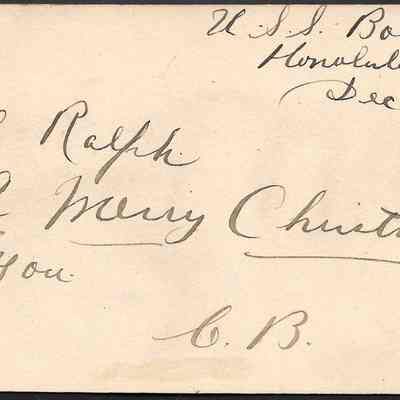 U.S.S. Bo
Honolul
Dec
Ralph
A Merry Christ
You.
C. B.